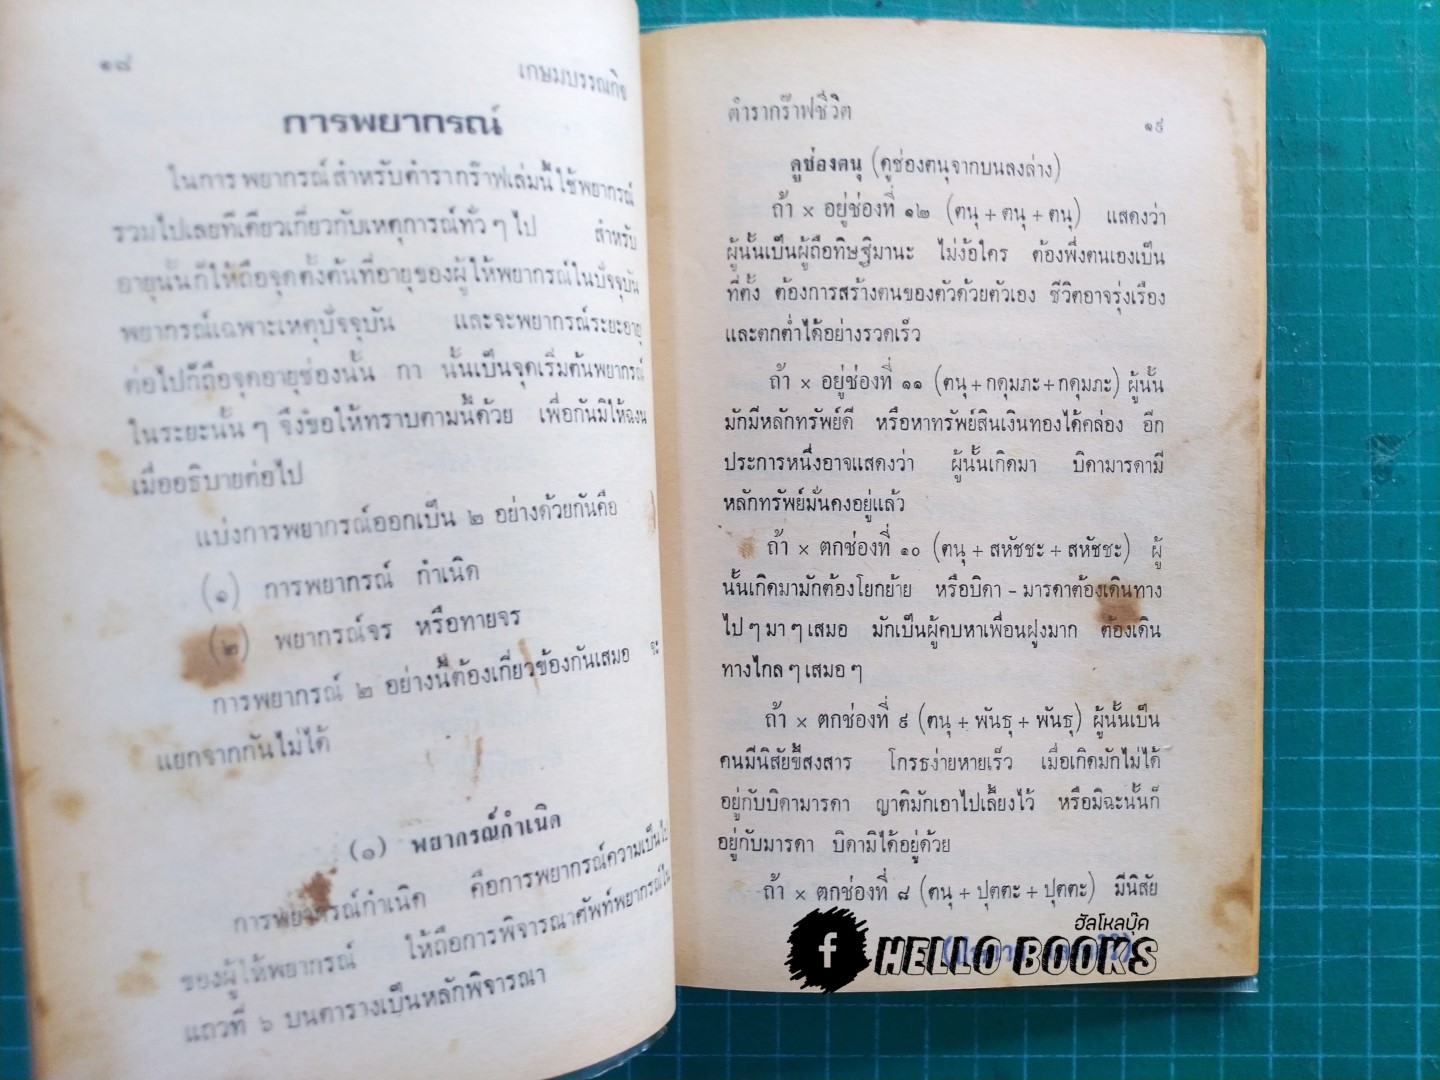 ๑๘
เกษมบรรณกิจ
การพยากรณ์
ในการพยากรณ์สำหรับตำรากร๊าฟเล่มนี้ ใช้พยากรณ์
รวมไปเลยทีเดียวเกี่ยวกับเหตุการณ์ทั่ว ๆ ไป สำหรับ
อายุนั้นก็ให้ถือจุดตั้งต้นที่อายุของผู้ให้พยากรณ์ในปัจจุบัน
พยากรณ์เฉพาะเหตุปัจจุบัน และจะพยากรณ์ระยะอายุ
ต่อไปก็ถือจุดอายุช่องนั้น กา นั้นเป็นจุดเริ่มต้นพยากรณ์
ในระยะนั้น ๆ จึงขอให้ทราบตามนี้ด้วย เพื่อกันมิให้ฉงน
เมื่ออธิบายต่อไป
แบ่งการพยากรณ์ออกเป็น ๒ อย่างด้วยกันคือ
(๑) การพยากรณ์ กำเนิด
(๒) พยากรณ์จร หรือทายจร
การพยากรณ์ ๒ อย่างนี้ต้องเกี่ยวข้องกันเสมอ จะ
แยกจากกันไม่ได้
(๑) พยากรณ์กำเนิด
การพยากรณ์กำเนิด คือการพยากรณ์ความเป็นไป
ของผู้ให้พยากรณ์ ให้ถือการพิจารณาศัพท์พยากรณ์ใน
แถวที่ ๖ บนตารางเป็นหลักพิจารณา
ตำรากร๊าฟชีวิต
๑๙
ดูช่องตนุ (ดูช่องตนุจากบนลงล่าง)
ถ้า × อยู่ช่องที่ ๑๒ (ตนุ + ตนุ + ตนุ) แสดงว่า
ผู้นั้นเป็นผู้ถือทิษฐิมานะ ไม่ง้อใคร ต้องพึ่งตนเองเป็น
ที่ตั้ง ต้องการสร้างตนของตัวด้วยตัวเอง ชีวิตอาจรุ่งเรือง
และตกต่ำได้อย่างรวดเร็ว
ถ้า × อยู่ช่องที่ ๑๑ (ตนุ + กดุมภะ + กดุมภะ) ผู้นั้น
มักมีหลักทรัพย์ดี หรือหาทรัพย์สินเงินทองได้คล่อง อีก
ประการหนึ่งอาจแสดงว่า ผู้นั้นเกิดมา บิดามารดามี
หลักทรัพย์มั่นคงอยู่แล้ว
ถ้า × ตกช่องที่ ๑๐ (ตนุ + สหัชชะ + สหัชชะ) ผู้
นั้นเกิดมามักต้องโยกย้าย หรือบิดา - มารดาต้องเดินทาง
ไป ๆ มา ๆ เสมอ มักเป็นผู้คบหาเพื่อนฝูงมาก ต้องเดิน
ทางไกล ๆ เสมอ ๆ
ถ้า × ตกช่องที่ ๙ (ตนุ + พันธุ + พันธุ) ผู้นั้นเป็น
คนมีนิสัยขี้สงสาร โกรธง่ายหายเร็ว เมื่อเกิดมักไม่ได้
อยู่กับบิดามารดา ญาติมักเอาไปเลี้ยงไว้ หรือมิฉะนั้นก็
อยู่กับมารดา บิดามิได้อยู่ด้วย
ถ้า × ตกช่องที่ ๘ (ตนุ + ปุตตะ + ปุตตะ) มีนิสัย
ฮัลโหลบุ๊ค
f HELLO BOOKS